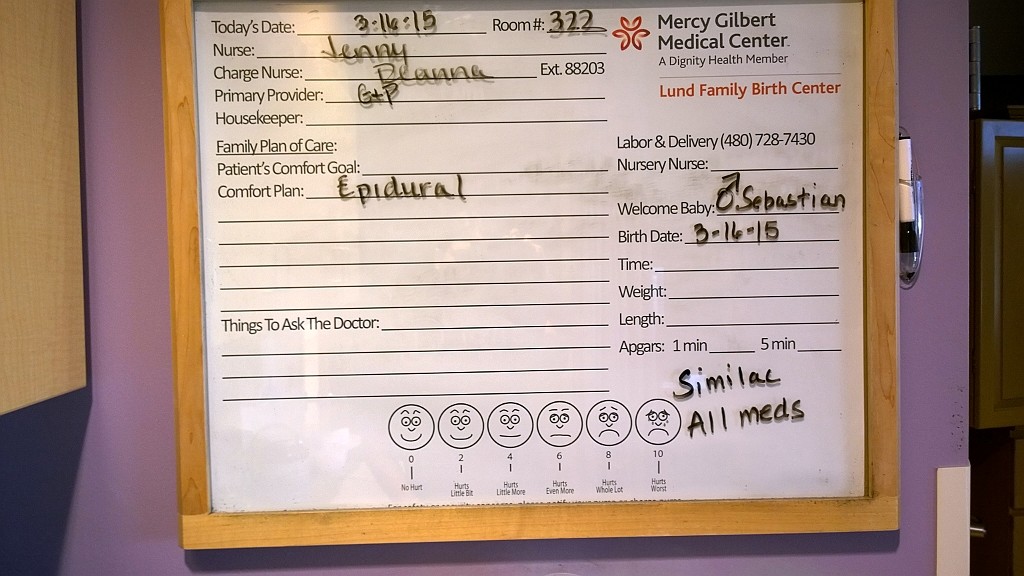 Today's Date: 3-16-15 Room #: 322
Nurse: Jenny
Charge Nurse: Deanna Ext. 88203
Primary Provider: G+P
Housekeeper:
Family Plan of Care:
Patient's Comfort Goal:
Comfort Plan: Epidural
Things To Ask The Doctor:
Mercy Gilbert
Medical Center.
A Dignity Health Member
Lund Family Birth Center
Labor & Delivery (480) 728-7430
Nursery Nurse:
Welcome Baby: ♂ Sebastian
Birth Date: 3-16-15
Time:
Weight:
Length:
Apgars: 1 min 5 min
Similac
All meds
0 2 4 6 8 10
No Hurt Hurts Little Bit Hurts Little More Hurts Even More Hurts Whole Lot Hurts Worst